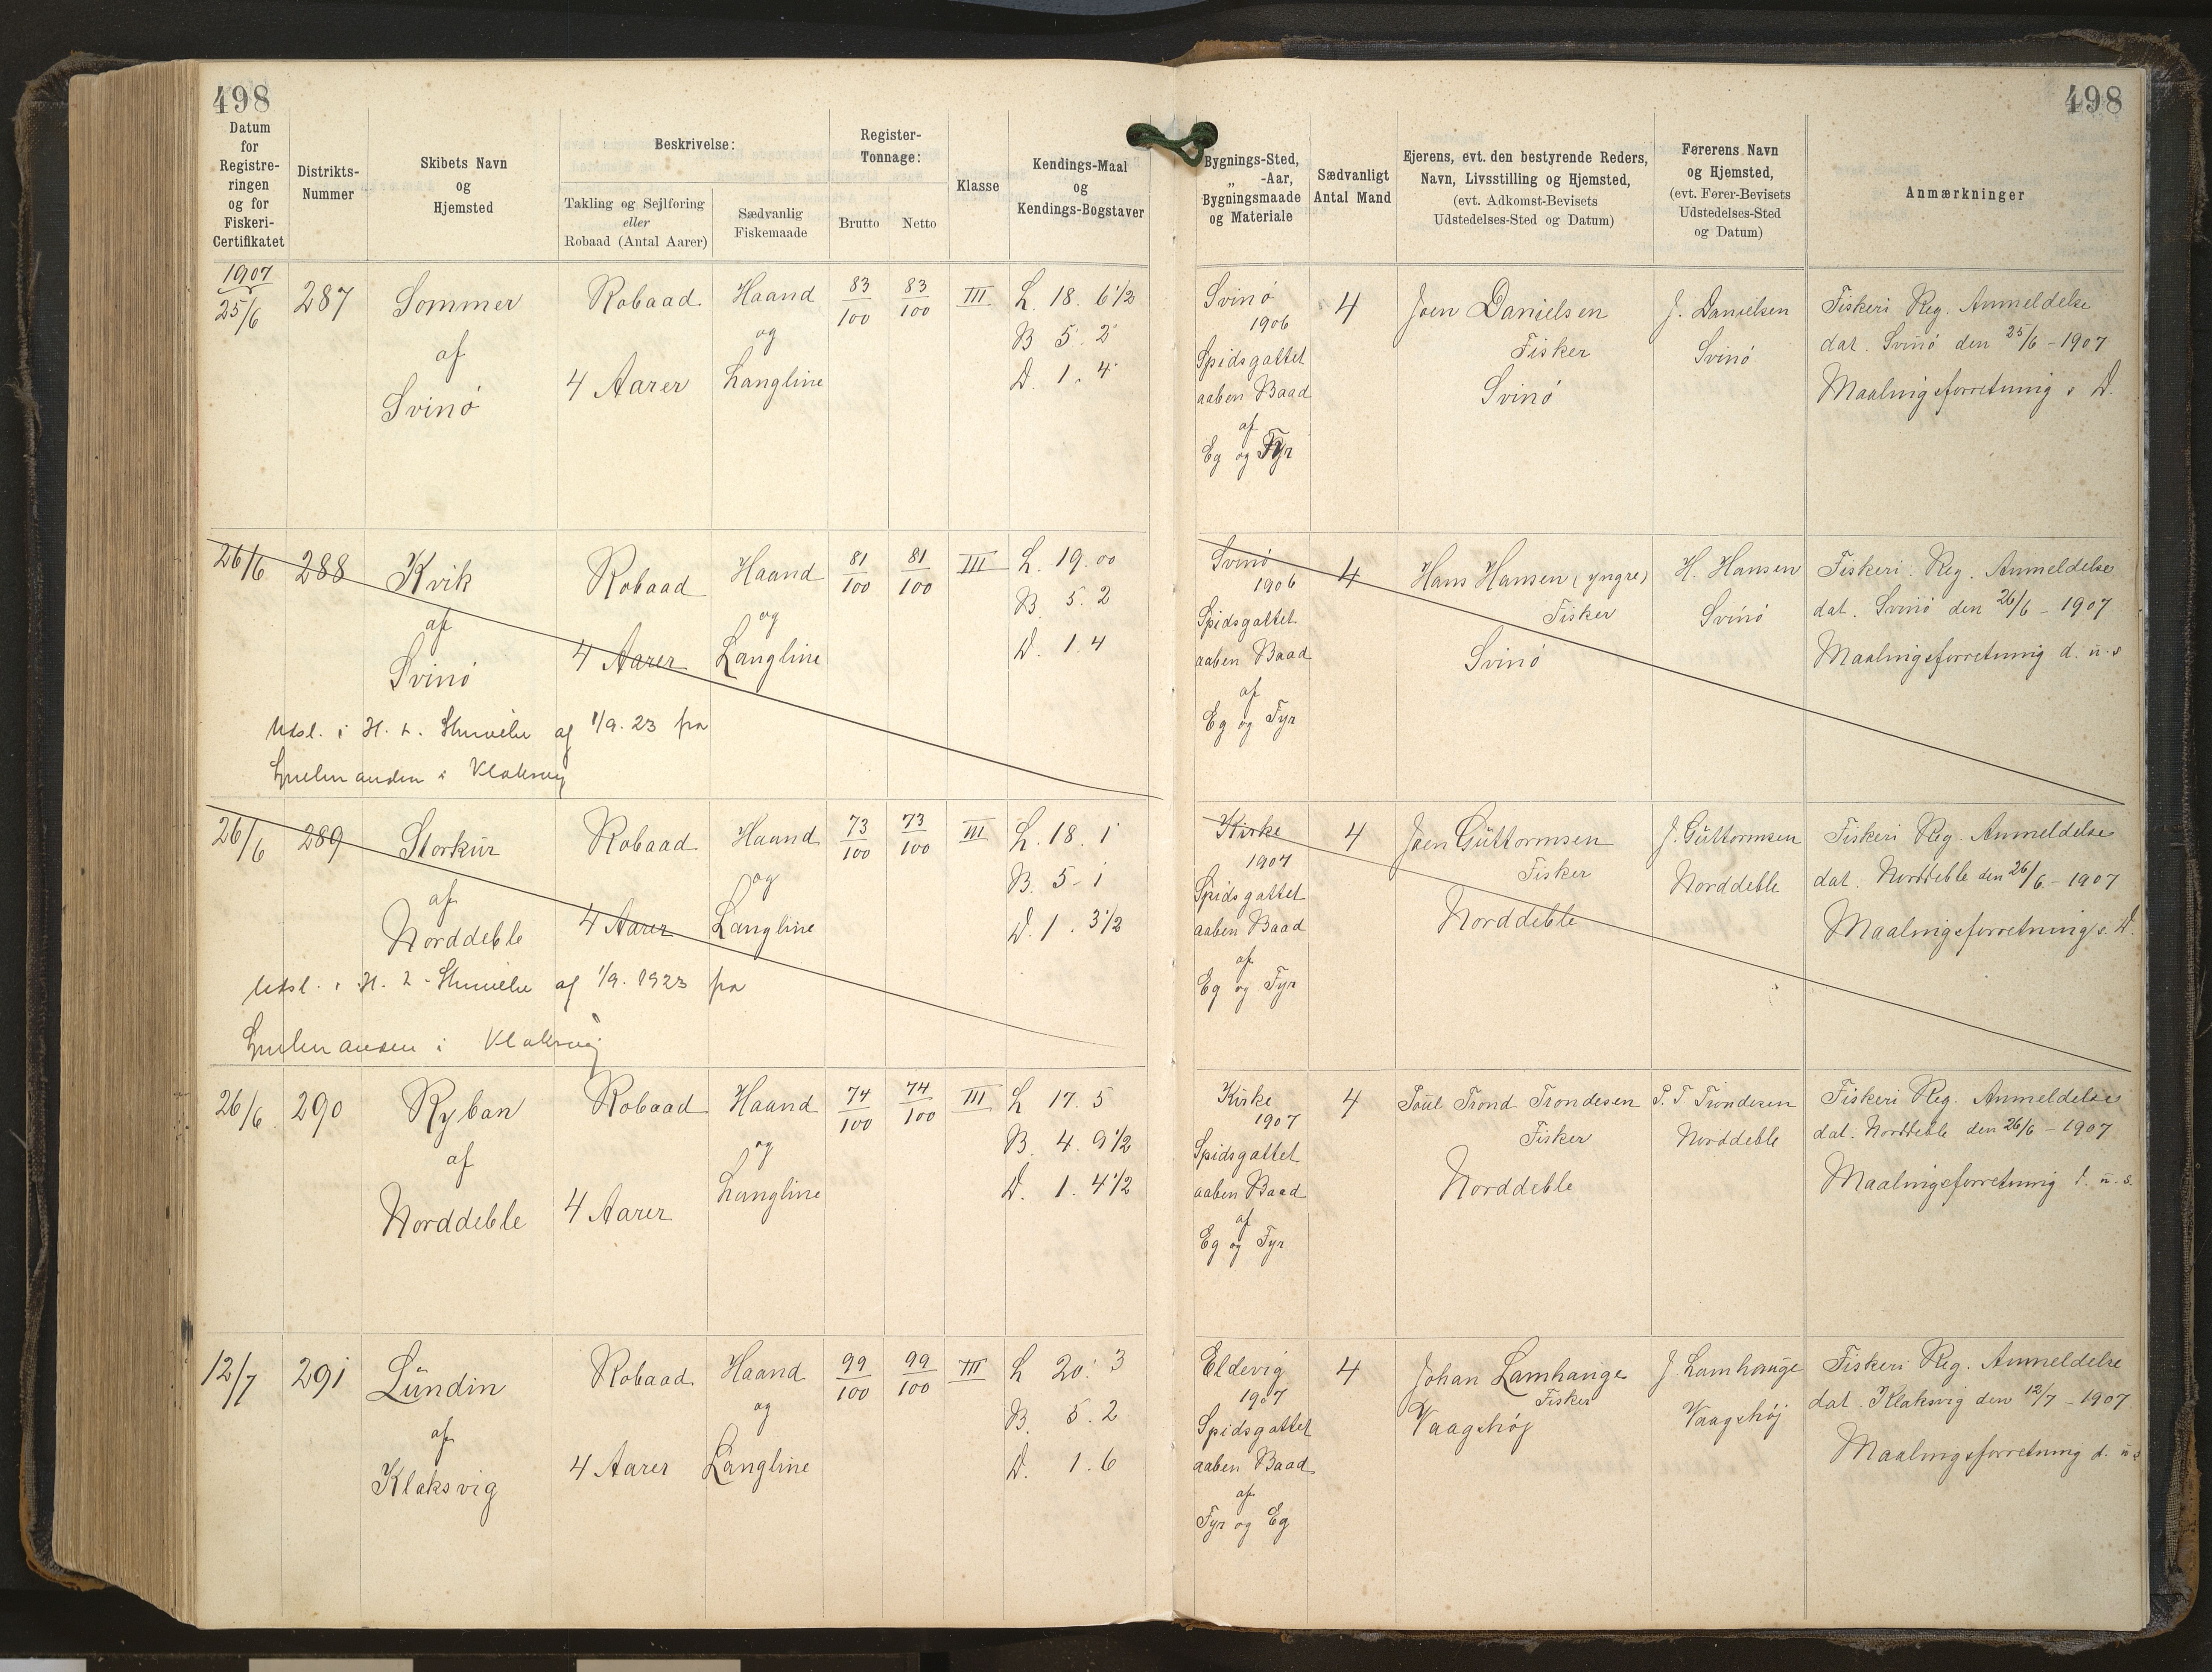 498
498
Datum
for
Registre-
ringen
og for
Fiskeri-
Certifikatet
Distrikts-
Nummer
Skibets Navn
og
Hjemsted
Beskrivelse:
Takling og Sejlføring
eller
Robaad (Antal Aarer)
Sædvanlig
Fiskemaade
Register-
Tonnage:
Brutto
Netto
Klasse
Kendings-Maal
og
Kendings-Bogstaver
Bygnings-Sted,
„ -Aar,
Bygningsmaade
og Materiale
Sædvanligt
Antal Mand
Ejerens, evt. den bestyrende Reders,
Navn, Livsstilling og Hjemsted,
(evt. Adkomst-Bevisets
Udstedelses-Sted og Datum)
Førerens Navn
og Hjemsted,
(evt. Fører-Bevisets
Udstedelses-Sted
og Datum)
Anmærkninger
1907
25/6
287
Sommer
af
Svinø
Robaad
4 Aarer
Haand
og
Langline
83/100
83/100
III
L. 18. 6 1/2
B 5. 2
D. 1. 4
Svinø
1906
Spidsgattet
aaben Baad
af
Eg og Fyr
4
Joen Danielsen
Fisker
Svinø
J. Danielsen
Svinø
Fiskeri Reg. Anmeldelse
dat. Svinø den 25/6 - 1907
Maalingsforretning s D.
26/6
288
Kvik
af
Svinø
Robaad
4 Aarer
Haand
og
Langline
81/100
81/100
III
L. 19. 00
B. 5. 2
D. 1. 4
Udsl. i H. t. Skrivelse af 1/9. 23 fra
i Klaksvig
Svinø
1906
Spidsgattet
aaben Baad
af
Eg og Fyr
4
Hans Hansen (yngre)
Fisker
Svinø
H. Hansen
Svinø
Fiskeri. Reg. Anmeldelse
dat. Svinø den 26/6 - 1907
Maalingsforretning d. u. s
26/6
289
Storkur
af
Norddeble
Robaad
4 Aarer
Haand
og
Langline
73/100
73/100
III
L. 18. 1
B. 5 - 1
D. 1. 3 1/2
Udsl. i H. t. Skrivelse af 1/9. 1923 fra
i Klaksvig
Kirke
1907
Spidsgattet
aaben Baad
af
Eg og Fyr
4
Joen Guttormsen
Fisker
Norddeble
J. Guttormsen
Norddeble
Fiskeri Reg. Anmeldelse
dat. Norddeble den 26/6 - 1907
Maalingsforretning s. D.
26/6
290
Ryban
af
Norddeble
Robaad
4 Aarer
Haand
og
Langline
74/100
74/100
III
L 17. 5
B. 4. 9 1/2
D. 1. 4 1/2
Kirke
1907
Spidsgattet
aaben Baad
af
Eg og Fyr
4
Poul Trond Trondesen
Fisker
Norddeble
P. T. Trondesen
Norddeble
Fiskeri Reg. Anmeldelse
dat. Norddeble den 26/6 - 1907
Maalingsforretning d. u. s.
12/7
291
Lundin
af
Klaksvig
Robaad
4 Aarer
Haand
og
Langline
99/100
99/100
III
L 20. 3
B. 5. 2
D. 1. 6
Eldevig
1907
Spidsgattet
aaben Baad
af
Fyr og Eg
4
Johan Lamhauge
Fisker
Vaagshøj
J Lamhauge
Vaagshøj
Fiskeri Reg. Anmeldelse
dat. Klaksvig den 12/7 - 1907
Maalingsforretning d. u s